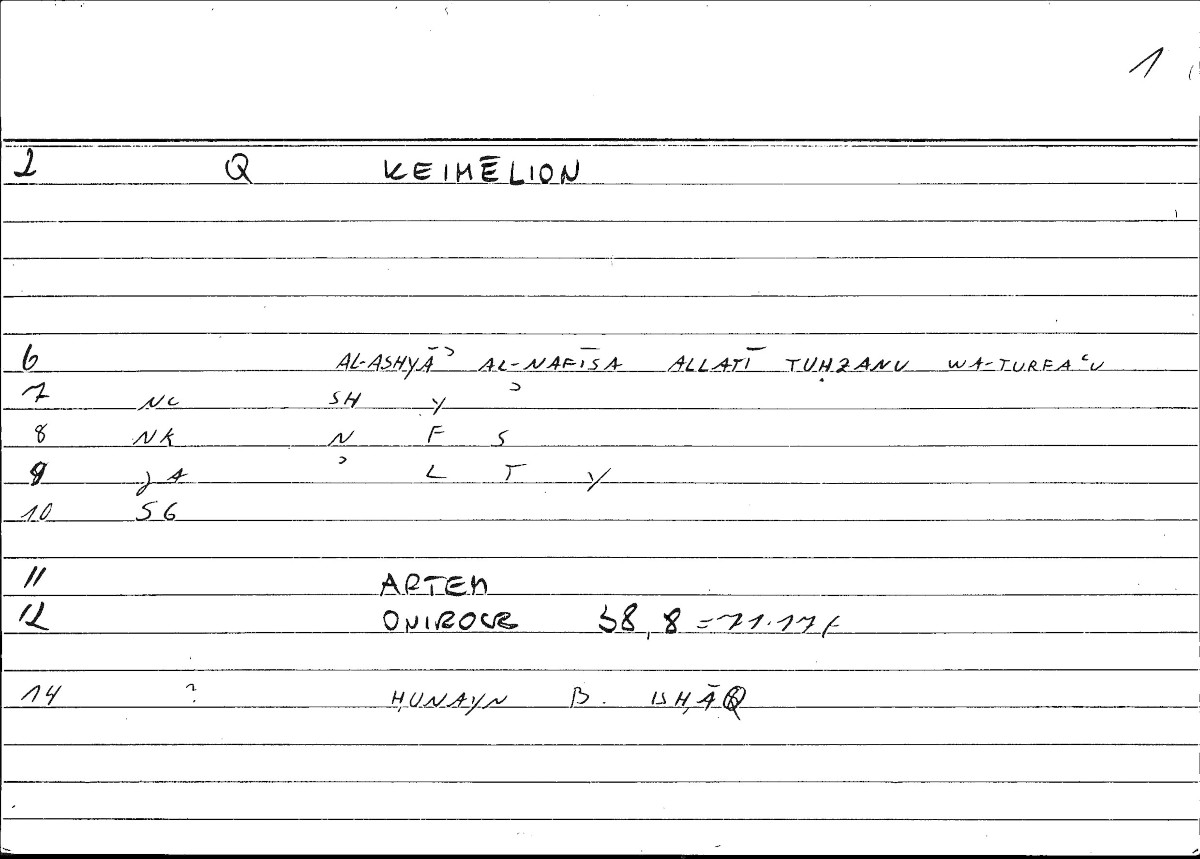 1
2 Q KEIMĒLION
6 AL-ASHYĀʾ AL-NAFĪSA ALLATĪ TUḤZANU WA-TURFAʿU
7 NC SH Y ʾ
8 NK N F S
9 ʾ L T Y
10 SG
11 ARTEM
12 ONIROCR 38,8 = 71.17f
14 ? ḤUNAYN B. ISḤĀQ